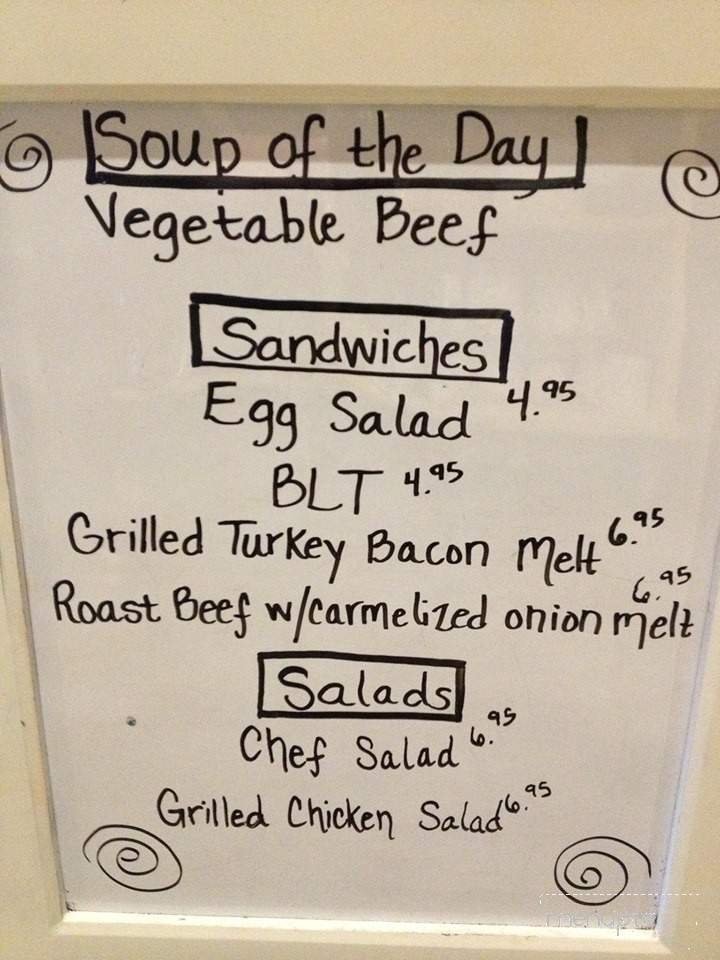 Soup of the Day
Vegetable Beef
Sandwiches
Egg Salad 4.95
BLT 4.95
Grilled Turkey Bacon Melt 6.95
Roast Beef w/carmelized onion melt 6.95
Salads
Chef Salad 6.95
Grilled Chicken Salad 6.95